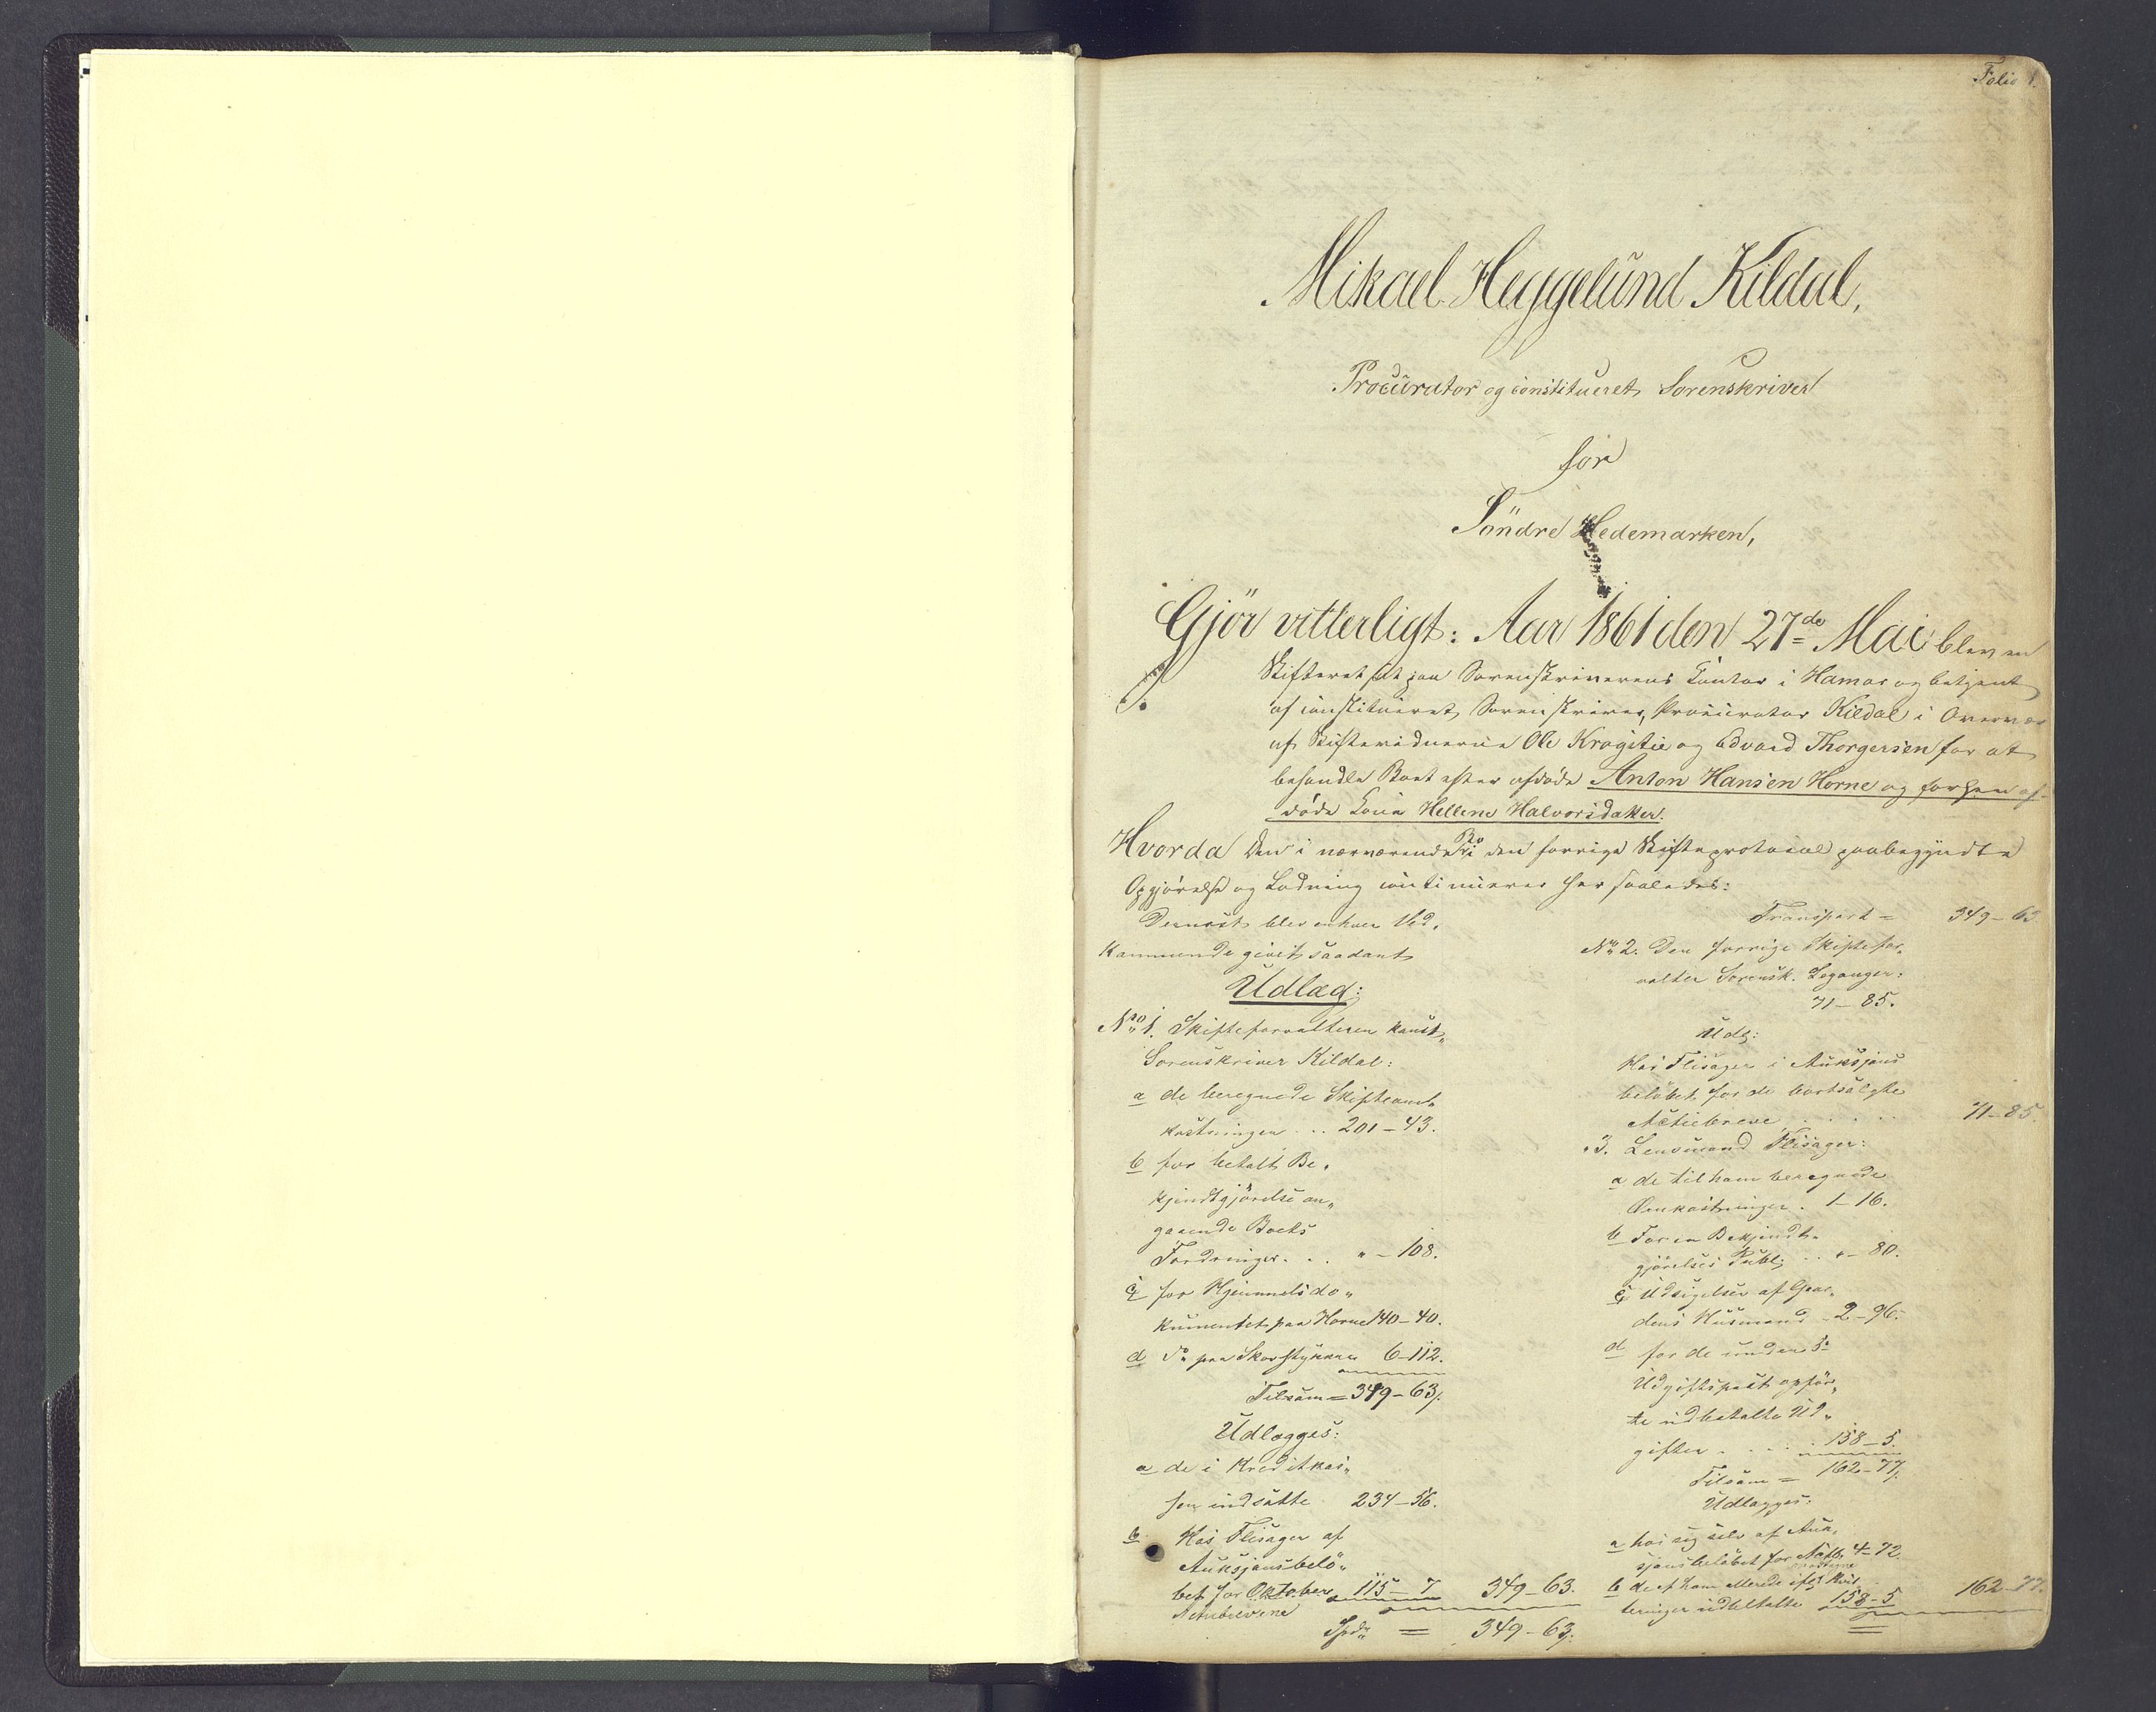 Folio 1.
Mikael Heggelund Kildal,
Procurator og constitueret Sorenskriver
for
Söndre Hedemarken,
Gjör vitterligt: Aar 1861 den 27de Mai blev en
Skifteret sat paa Sorenskriverens Contor i Hamar og betjent
af constitueret Sorenskriver, Procurator Kildal i Overvær
af Skiftevidnerne Ole Krogstie og Edvard Thorgersen for at
behandle Boet efter afdöde Anton Hansen Horne og forhen af-
döde Kone Hellene Halvorsdatter.
Hvorda den i nærværende Bo i den forrige Skifteprotocol paabegyndte
Opgjörelse og Lodning continueres her saaledes:
Dernæst blev enhver Ved„
kommende givet saadant
Udlæg:
No 1. Skifteforvalteren konst„
Sorenskriver Kildal:
a de beregnede Skifteom„
kostninger ... 201-43.
b for betalt Be„
kjendtgjörelse an„
gaaende Boets
Fordringer . . . " - 108.
c for Hjemmelsdo„
kumentet paa Horne 140-40.
d Do paa Skovstykket 6-112.
Tilsam = 349-63.
Udlægges:
a de i Kreditkas„
sen indsatte 234-56.
b Hos Flisager af
Auksjonsbelö„
bet for Oktober 115-7 349-63.
Actiebrevene
Spd = 349-63.
Transport = 349-63
No 2. Den forrige Skiftefor„
valter Sorensk. Leganger:
71-85.
Udl:
Hos Flisager i Auksjons
belöbet for de bortsolgte
Actiebreve . . . . . 71-85.
„3. Lensmand Flisager:
a de til ham beregnede
Omkostninger . 1-16.
b For en Bekjendt„
gjörelses Publ: .. "-80.
c Udsigelser af Gaar„
dens Husmand - 2-96.
d for de under 5te
Udgiftspost opför„
te udbetalte Ud„
gifter . . . . . 158-5.
Tilsam = 162-77.
Udlægges:
a hos sig selv af Auk„
sjonsbelöbet for 4-72.
b de af ham allerede ifölge Kvit„
teringer udbetalte 158-5 162-77.